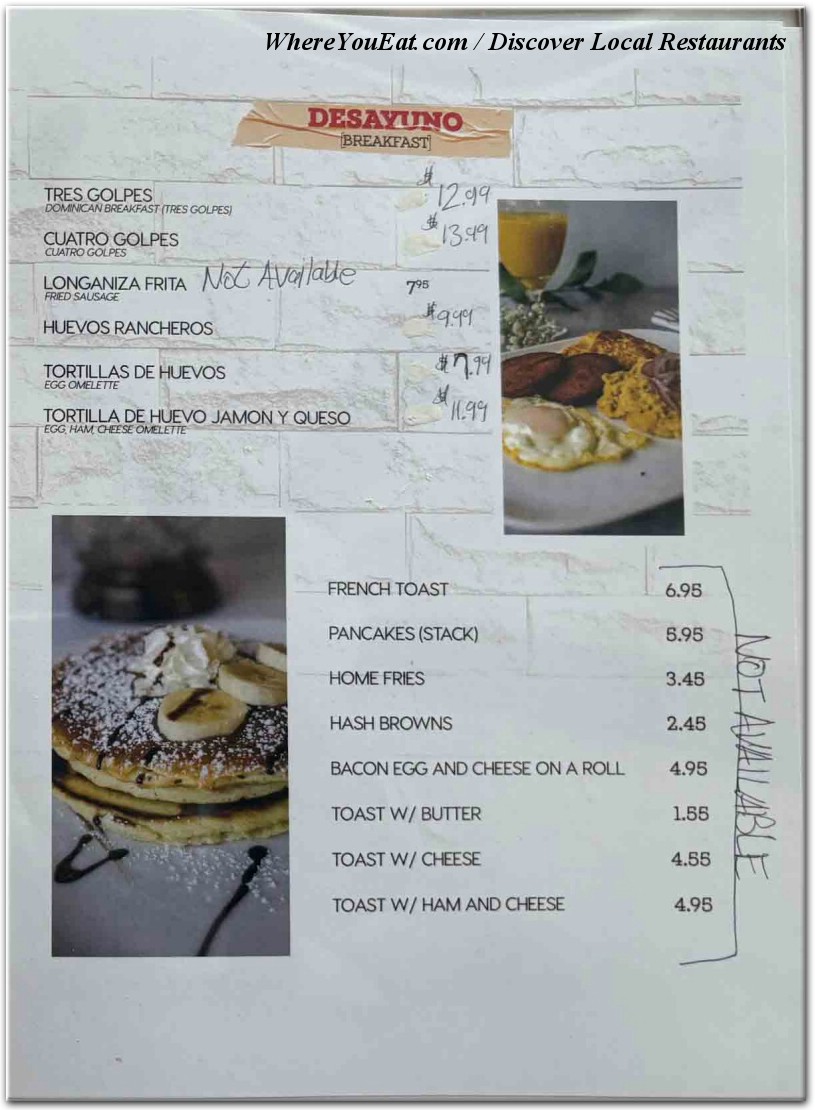 WhereYouEat.com / Discover Local Restaurants
DESAYUNO
[BREAKFAST]
TRES GOLPES $12.99
DOMINICAN BREAKFAST (TRES GOLPES)
CUATRO GOLPES $13.99
CUATRO GOLPES
LONGANIZA FRITA Not Available 7.95
FRIED SAUSAGE
HUEVOS RANCHEROS $9.99
TORTILLAS DE HUEVOS $7.99
EGG OMELETTE
TORTILLA DE HUEVO JAMON Y QUESO $11.99
EGG, HAM, CHEESE OMELETTE
FRENCH TOAST 6.95
PANCAKES (STACK) 5.95
HOME FRIES 3.45
HASH BROWNS 2.45
BACON EGG AND CHEESE ON A ROLL 4.95
TOAST W/ BUTTER 1.55
TOAST W/ CHEESE 4.55
TOAST W/ HAM AND CHEESE 4.95
NOT AVAILABLE